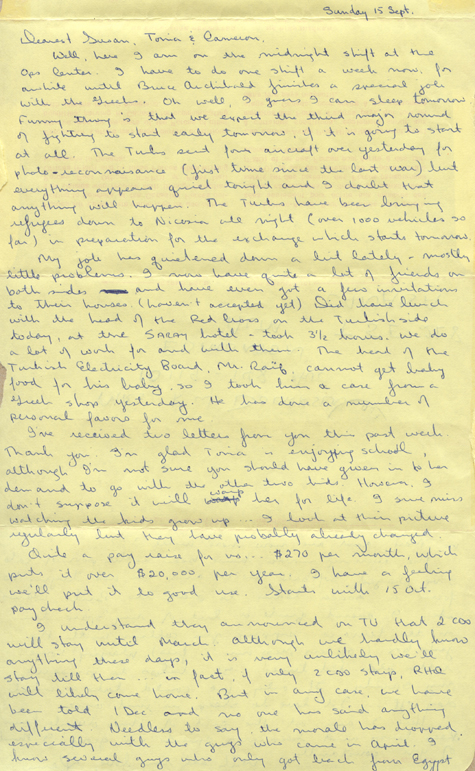 Sunday 15 Sept.
Dearest Susan, Tonia & Cameron,
Well, here I am on the midnight shift at the
Ops Center. I have to do one shift a week now, for
awhile until Bruce Archibald finishes a special job
with the Greeks. Oh well, I guess I can sleep tomorrow
Funny thing is, that we expect the third major round
of fighting to start early tomorrow, if it is going to start
at all. The Turks sent four aircraft over yesterday for
photo-reconnaisance (first time since the last war) but
everything appears quiet tonight and I doubt that
anything will happen. The Turks have been bringing
refugees down to Nicosia all night (over 1000 vehicles so
far) in preparation for the exchange which starts tomorrow.
My job has quietened down a bit lately - mostly
little problems. I now have quite a lot of friends on
both sides and have even got a few invitations
to their houses (haven't accepted yet) Did have lunch
with the head of the Red Cross on the Turkish side
today, at the SARAY hotel - took 3½ hours. We do
a lot of work for and with them. The head of the
Turkish Electricity Board, Mr. Raif, cannot get baby
food for his baby, so I took him a case from a
Greek shop yesterday. He has done a number of
personal favors for me.
I've received two letters from you this past week.
Thank you. I'm glad Tonia is enjoying school,
although I'm not sure you should have given in to her
demand to go with the other two kids. However, I
don't suppose it will warp her for life. I sure miss
watching the kids grow up... I look at their picture
regularly but they have probably already changed.
Quite a pay raise for us... $270 per month, which
puts it over $20,000. per year. I have a feeling
we'll put it to good use. Starts with 15 Oct.
paycheck.
I understand they announced on TV that 2 CDO
will stay until March. Although we hardly know
anything these days, it is very unlikely we'll
stay till then... in fact, if only 2 CDO stays, RHQ
will likely come home. But in any case, we have
been told 1 Dec and no one has said anything
different. Needless to say, the morale has dropped,
especially with the guys who came in April. I
know several guys who only got back from Egypt